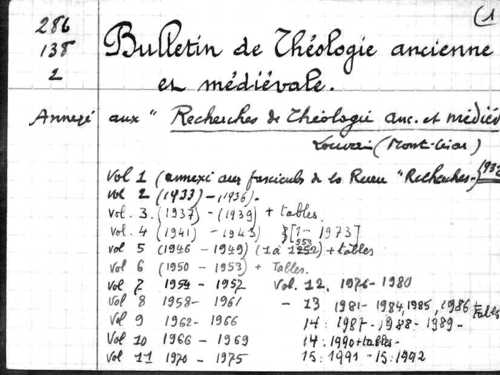 (1
286
138
2
Bulletin de Théologie ancienne
et médiévale.
Annexé aux "Recherches de Théologie anc. et médiév
Louvain (Mont-César)
Vol 1 (annexé aux fascicules de la Revue "Recherches-)
vol 2 (1933)-(1936).
Vol. 3. (1937) - (1939) + tables.
Vol. 4 (1941) - 1945) } [1- 1973]
vol 5 (1946 - 1949) (1à ) + tables
Vol 6 (1950 - 1953) + Tables.
Vol 7 1954 - 1957 Vol. 12, 1976-1980
Vol 8 1958- 1961 - 13 1981-1984, 1985, 1986 + tables
Vol 9 1962-1966 14: 1987-1988-1989-
Vol 10 1966 - 1969 14: 1990+tables-
Vol 11 1970 - 1975 15: 1991-15:1992